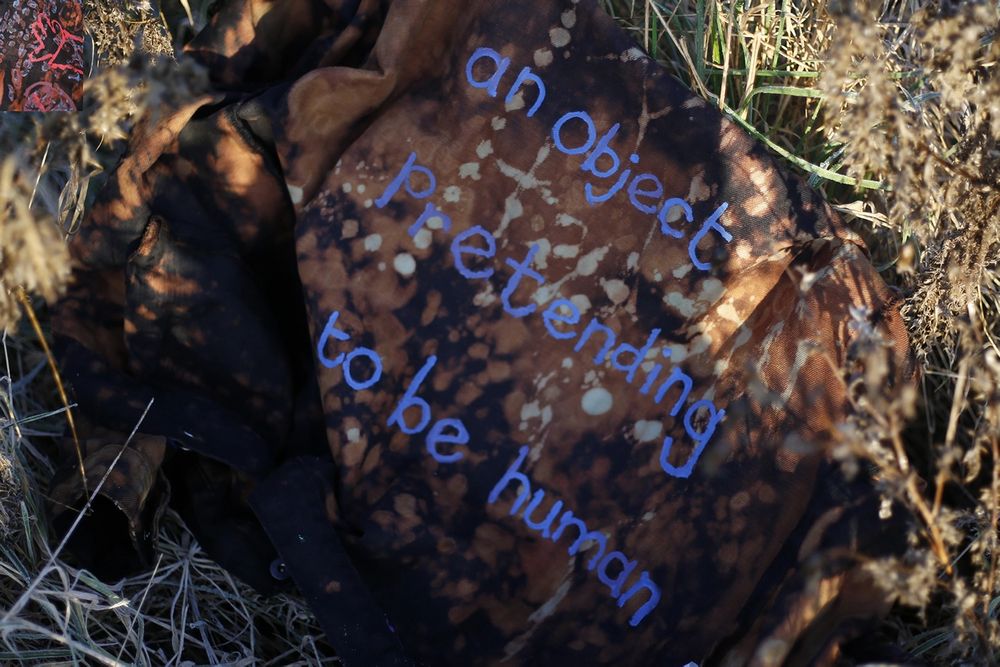 an object
pretending
to be human